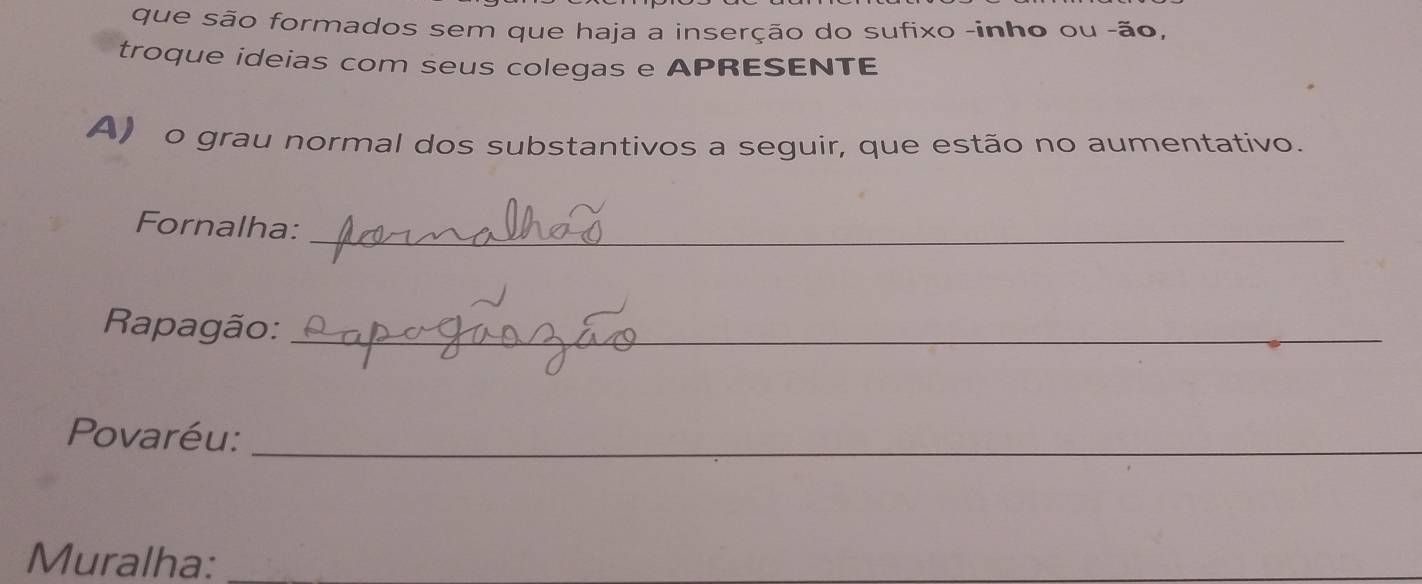 que são formados sem que haja a inserção do sufixo -inho ou -ão,
troque ideias com seus colegas e APRESENTE
A) o grau normal dos substantivos a seguir, que estão no aumentativo.
Fornalha: fornalhão
Rapagão: Rapagãozão
Povaréu:
Muralha: